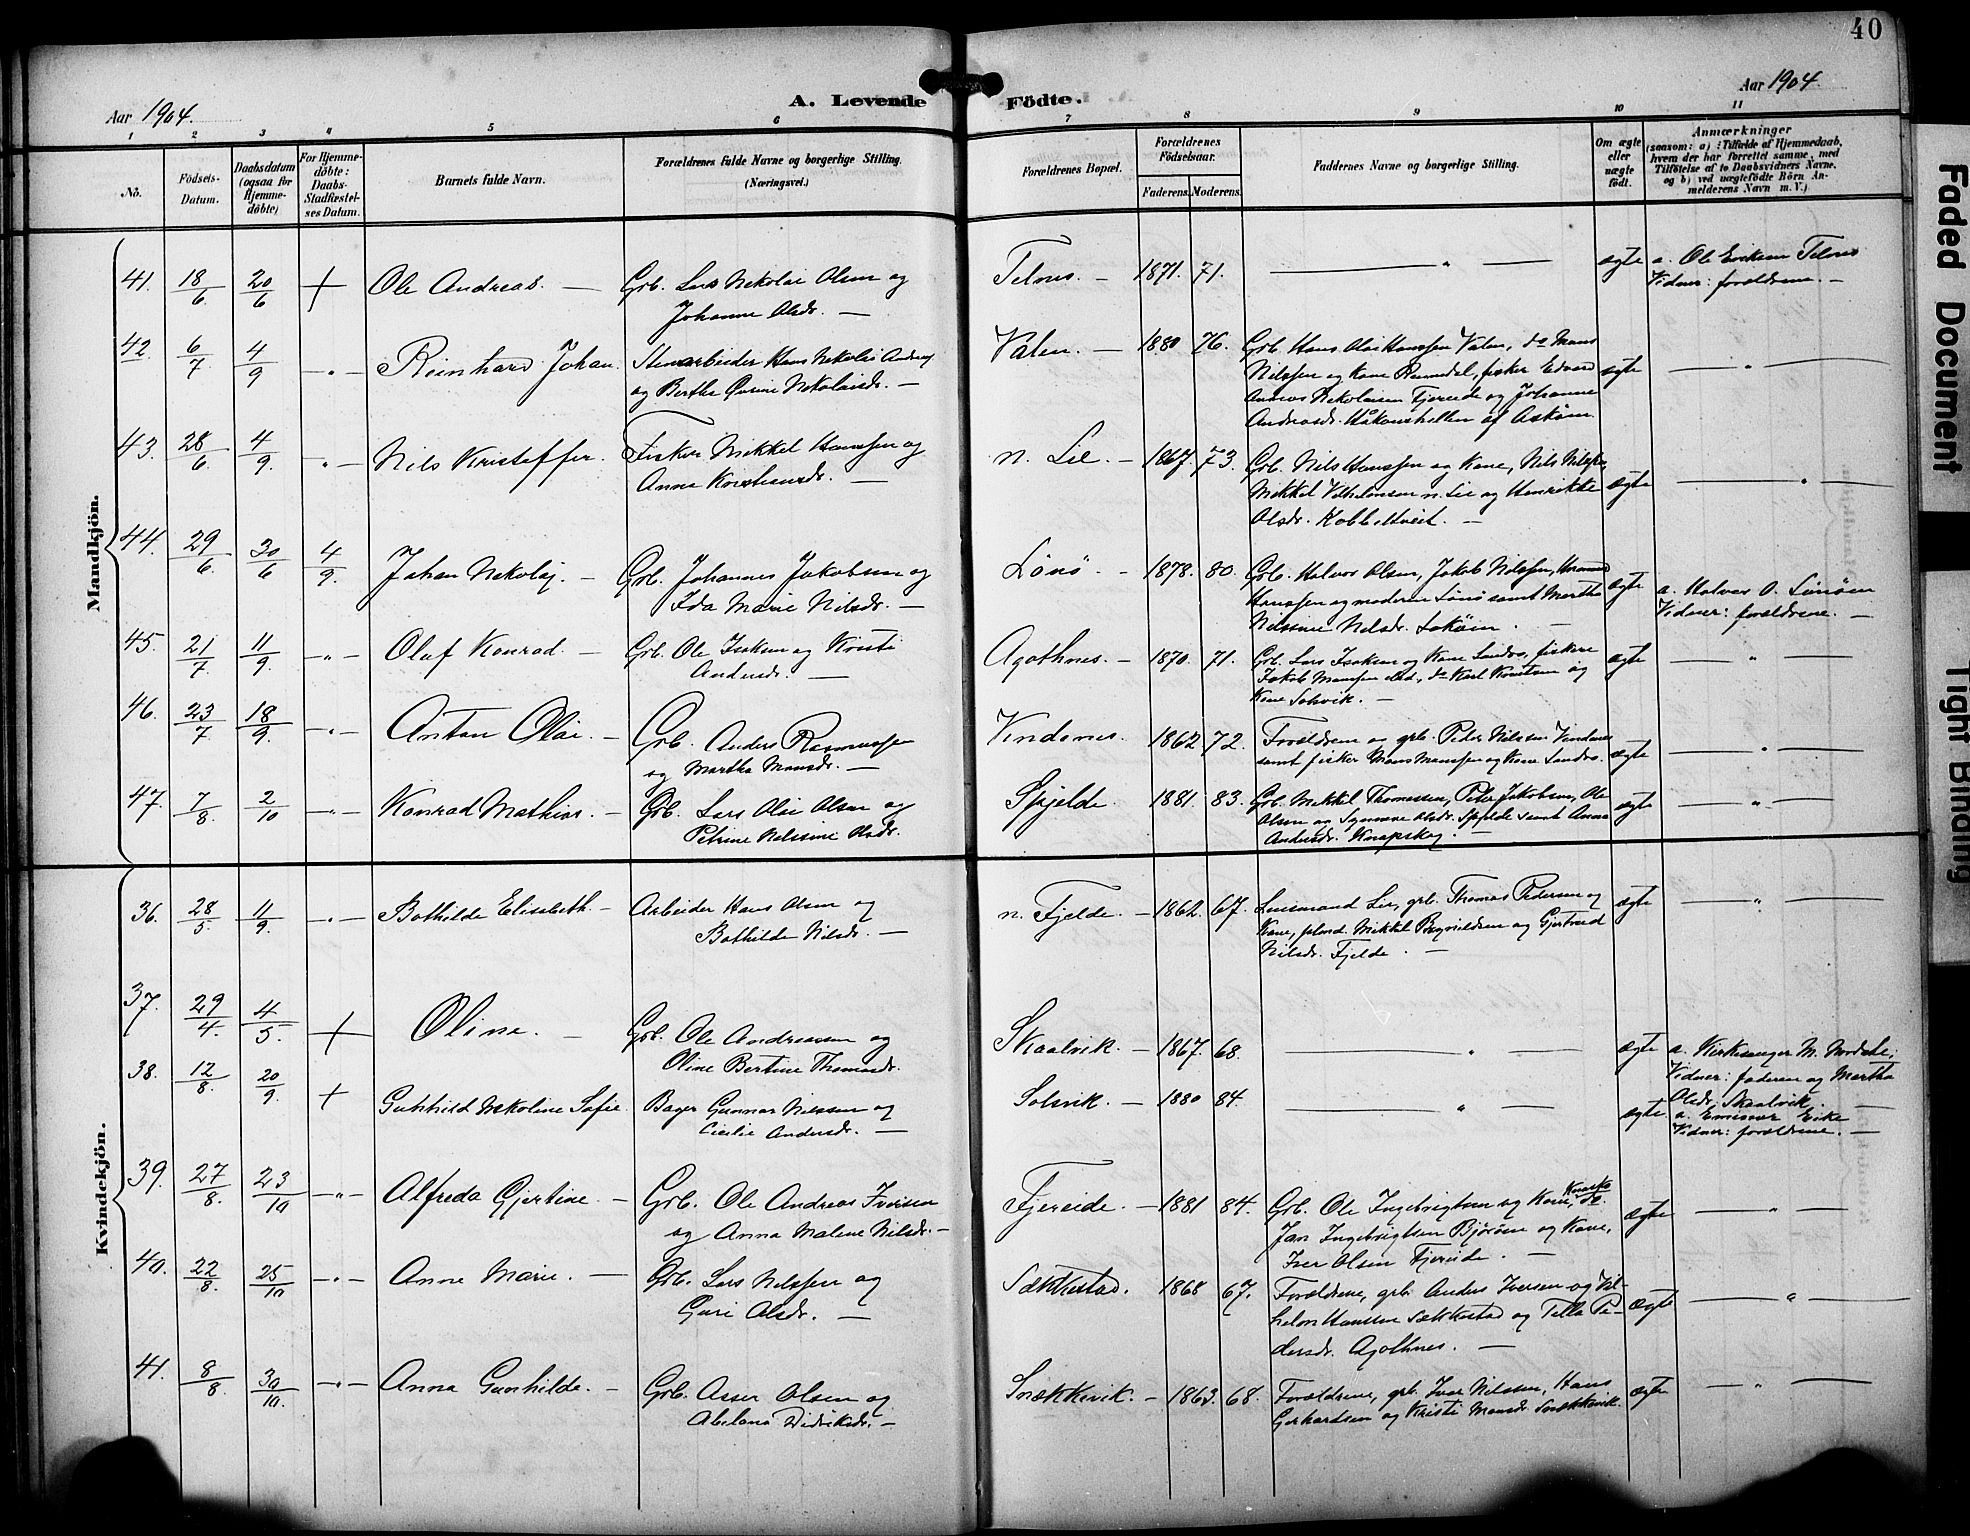 40
Aar 1904.
A. Levende Födte.
Aar 1904
1 2 3 4 5 6 7 8 9 10 11
No.
Födsels-Datum.
Daabsdatum (ogsaa for Hjemme-döbte)
For Hjemme-döbte: Daabs-Stadfæstel-ses Datum.
Barnets fulde Navn.
Forældrenes fulde Navne og borgerlige Stilling.
(Næringsvei.)
Forældrenes Bopæl.
Forældrenes Födselsaar.
Faderens. Moderens.
Faddernes Navne og borgerlige Stilling.
Om ægte eller uægte födt.
Anmærkninger
(saasom: a) Tilfælde af Hjemmedaab, hvem der har forrettet samme, med Tilföielse af to Daabsvidners Navne, og b) ved uægtefödte Börn Anmelderens Navn m. V.)
Mandkjön.
41. 18/6 20/6 + Ole Andreas. — Grb. Lars Nikolai Olsen og
Johanne Olsdr. —
Telnes. — 1871. 71. — " — ægte a. Ole Eriksen Telnes
Vidner: forældrene. —
42. 6/7 4/9 — " — Reinhard Johan. Stenarbeider Hans Nikolai Anders
og Berthe Nikolaisdr. —
Valen. — 1880 76. Grb. Hans Olai Hanssen Valen, do Mons
Nilssen og Kone, fisker Edvard
Andreas Nikolaisen Fjereide og Johanne
Andreasdr. Håkonshellen af Askøen
ægte — " —
43. 28/6 4/9. — " — Nils Kristoffer. Fisker Mikkel Hanssen og
Anna Kristiansdr. —
n. Lie. — 1867. 73. Grb. Nils Hanssen og Kone, Nils Nilssen
Mikkel Vilhelmsen n. Lie og Henrikke
Olsdr. Kobbeltveit. —
ægte — " —
44. 29/6 30/6 4/9. Johan Nikolaj. — Grb. Johannes Jakobsen og
Ida Marie Nilsdr. —
Lönö. — 1878. 80. Grb. Halvor Olsen, Jakob Nilssen,
Hanssen og moderen Lönö samt Martha
Nilssine Nilsdr. —
ægte a. Halvor O. Lönöen
Vidner: forældrene. —
45. 21/7 11/9. — " — Olaf Konrad. — Grb. Ole Isaksen og Kristi
Andersdr. —
Agothnes. — 1870. 71. Grb. Lars Isaksen og Kone Landro, fiskere
Jakob Monssen, do Karl Knutsen og
Kone Solsvik. —
ægte — " —
46. 23/7 18/9. — " — Anton Olai. — Grb. Anders Rasmussen
og Martha Monsdr. —
Vindenes. 1862 72. Forældrene og grb. Peder Nilssen Vindenes
samt fisker Mons Monssen og Kone Landro.
ægte — " —
47. 7/8. 2/10 — " — Konrad Mathias. — Grb. Lars Olai Olsen og
Petrine Nilssine Olsdr.
Spjelde. 1881. 83. Grb. Mikkel Thomassen, Peter Jakobsen, Ole
Olsen og Synneve Olsdr. Spjelde samt Anna
Andersdr. Knapskog. —
ægte — " —
Kvindekjön.
36. 28/5. 11/9. — " — Bothilde Elisabeth. — Arbeider Hans Olsen og
Bothilde Nilsdr. —
n. Fjelde. — 1862. 67. Lensmand Lie, grb. Thomas Pedersen og
Kone, Mikkel Brynildsen og Gjertrud
Nilsdr. Fjelde. —
ægte — " —
37. 29/4. 4/5. + Oline. — Grb. Ole Andreassen og
Oline Bertine Thomasdr.
Skaalvik. — 1867. 68. — " — ægte a. Kirkesanger M. Nordstø;
Vidner: faderen og Martha
Olsdr. Skaalvik. —
38. 12/8. 20/9. + Gunhild Nikoline Sofie. Bager Gunnar Nilssen og
Cicilie Andersdr. —
Solsvik. — 1880 84. — " — ægte a. Emissær Eike
Vidner: forældrene. —
39. 27/8. 23/10 — " — Alfreda Gjertine. — Grb. Ole Andreas Iversen
og Anna Malene Nilsdr. —
Fjereide. — 1881 84. Grb. Ole Ingebrigtsen og Kone, do.
Jan Ingebrigtsen Björöen og Kone,
Iver Olsen Fjereide. —
ægte — " —
40. 22/8. 25/10 — " — Anne Marie. — Grb. Lars Nilssen og
Guri Olsdr. —
Sækkestad. 1868 67. Forældrene, grb. Anders Iversen og Vil-
helm Hanssen Sækkestad og Tella Pe-
dersdr. Agothnes. —
ægte — " —
41. 8/8. 30/10. — " — Anna Gunhilde. — Grb. Asser Olsen og
Abelona Didriksdr. —
Snækkevik. — 1863. 68. Forældrene, grb. Ivar Nilssen, Hans
Gerhardsen og Kristi Monsdr. Snækkevik.
ægte — " —
Faded Document
Tight Binding